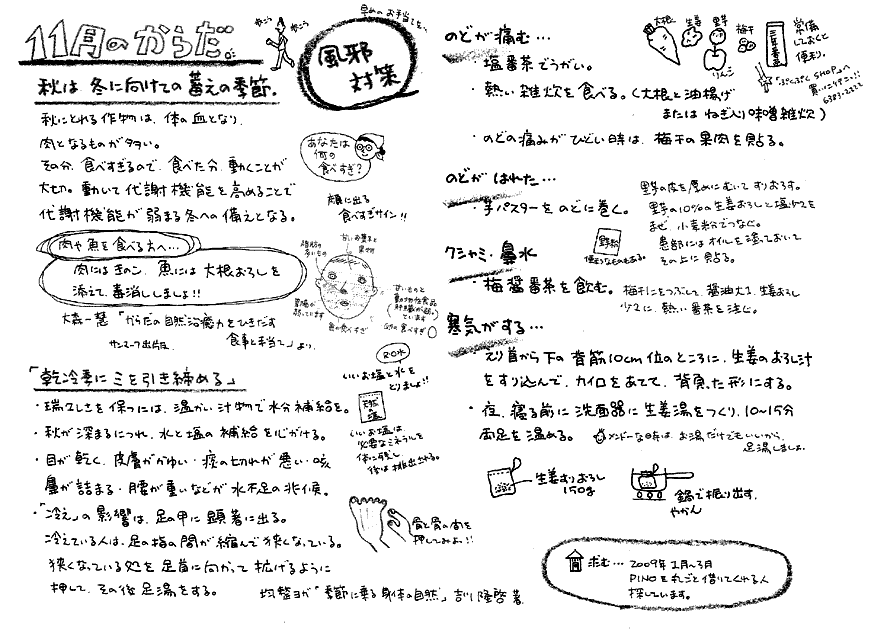 11月のからだ
秋は冬に向けての蓄えの季節.
秋にとれる作物は、体の血となり、
肉となるものが多い。
その分、食べすぎるので、食べた分、動くことが
大切。動いて代謝機能を高めることで
代謝機能が弱まる冬への備えとなる。
肉や魚を食べる方へ…
肉にはきのこ、魚には大根おろしを
添えて、毒消ししましょ!!
大森一慧「からだの自然治癒力をひきだす
食事と手当て」より、
サンマーク出版
「乾冷季にミを引き締める」
・瑞々しさを保つには、温かい汁物で水分補給を。
・秋が深まるにつれ、水と塩の補給を心がける。
・目が乾く、皮膚がかゆい・痰の切れが悪い・咳
鼻が詰まる・腰が重いなどが水不足の兆候。
・「冷え」の影響は、足の甲に顕著に出る。
冷えている人は、足の指の間が縮んで狭くなっている。
狭くなっている処を足首に向かって拡げるように
押して、その後足湯をする。
均整ヨガ「季節に乗る身体の自然」吉川隆啓著
早めのお手当てを、
歩こう
歩こう
風邪
対策
あなたは
何の
食べすぎ?
顔に出る
食べすぎサイン!!
脂肪の
多いもの
甘いお菓子と
果物
胃腸が
弱っています
魚の食べすぎ
甘いものと
動物性食品
肝臓が弱っ
ています
卵の食べすぎ
80%
いいお塩と水を
とりましょ!!
いいお塩は、
必要なミネラルを
体に残し
後は排出される。
骨と骨の間を
押してみよ!!
のどが痛む…
・塩番茶でうがい。
・熱い雑炊を食べる。(大根と油揚げ
またはねぎ入り味噌雑炊)
・のどの痛みがひどい時は、梅干の果肉を貼る。
大根
生姜
野
梅干
りんご
三年番茶
常備
しておくと
便利。
「ぷくぷくSHOP」へ
買いにいけマン!!
6383-2222
のどがはれた…
・芋パスターをのどに巻く。
里芋の皮を厚めにむいてすりおろす。
里芋の10%の生姜おろしと塩少々を
まぜ、小麦粉でつなぐ。
患部にはオイルを塗っておいて
その上に貼る。
里芋粉
便利なものもある。
クシャミ・鼻水
・梅醤番茶を飲む。
梅干をつぶして、醤油大1、生姜おろし
少々に、熱い番茶を注ぐ。
寒気がする…
・えり首から下の背筋10cm位のところに、生姜のおろし汁
をすり込んで、カイロをあてて、背負った形にする。
・夜、寝る前に洗面器に生姜湯をつくり、10〜15分
両足を温める。
メンドーな時は、お湯だけでもいいから、
足湯しましょ。
生姜すりおろし
150g
鍋で振り出す、
やかん
求む…
2009年1月〜3月
PINOを丸ごと借りてくれる人
探しています。